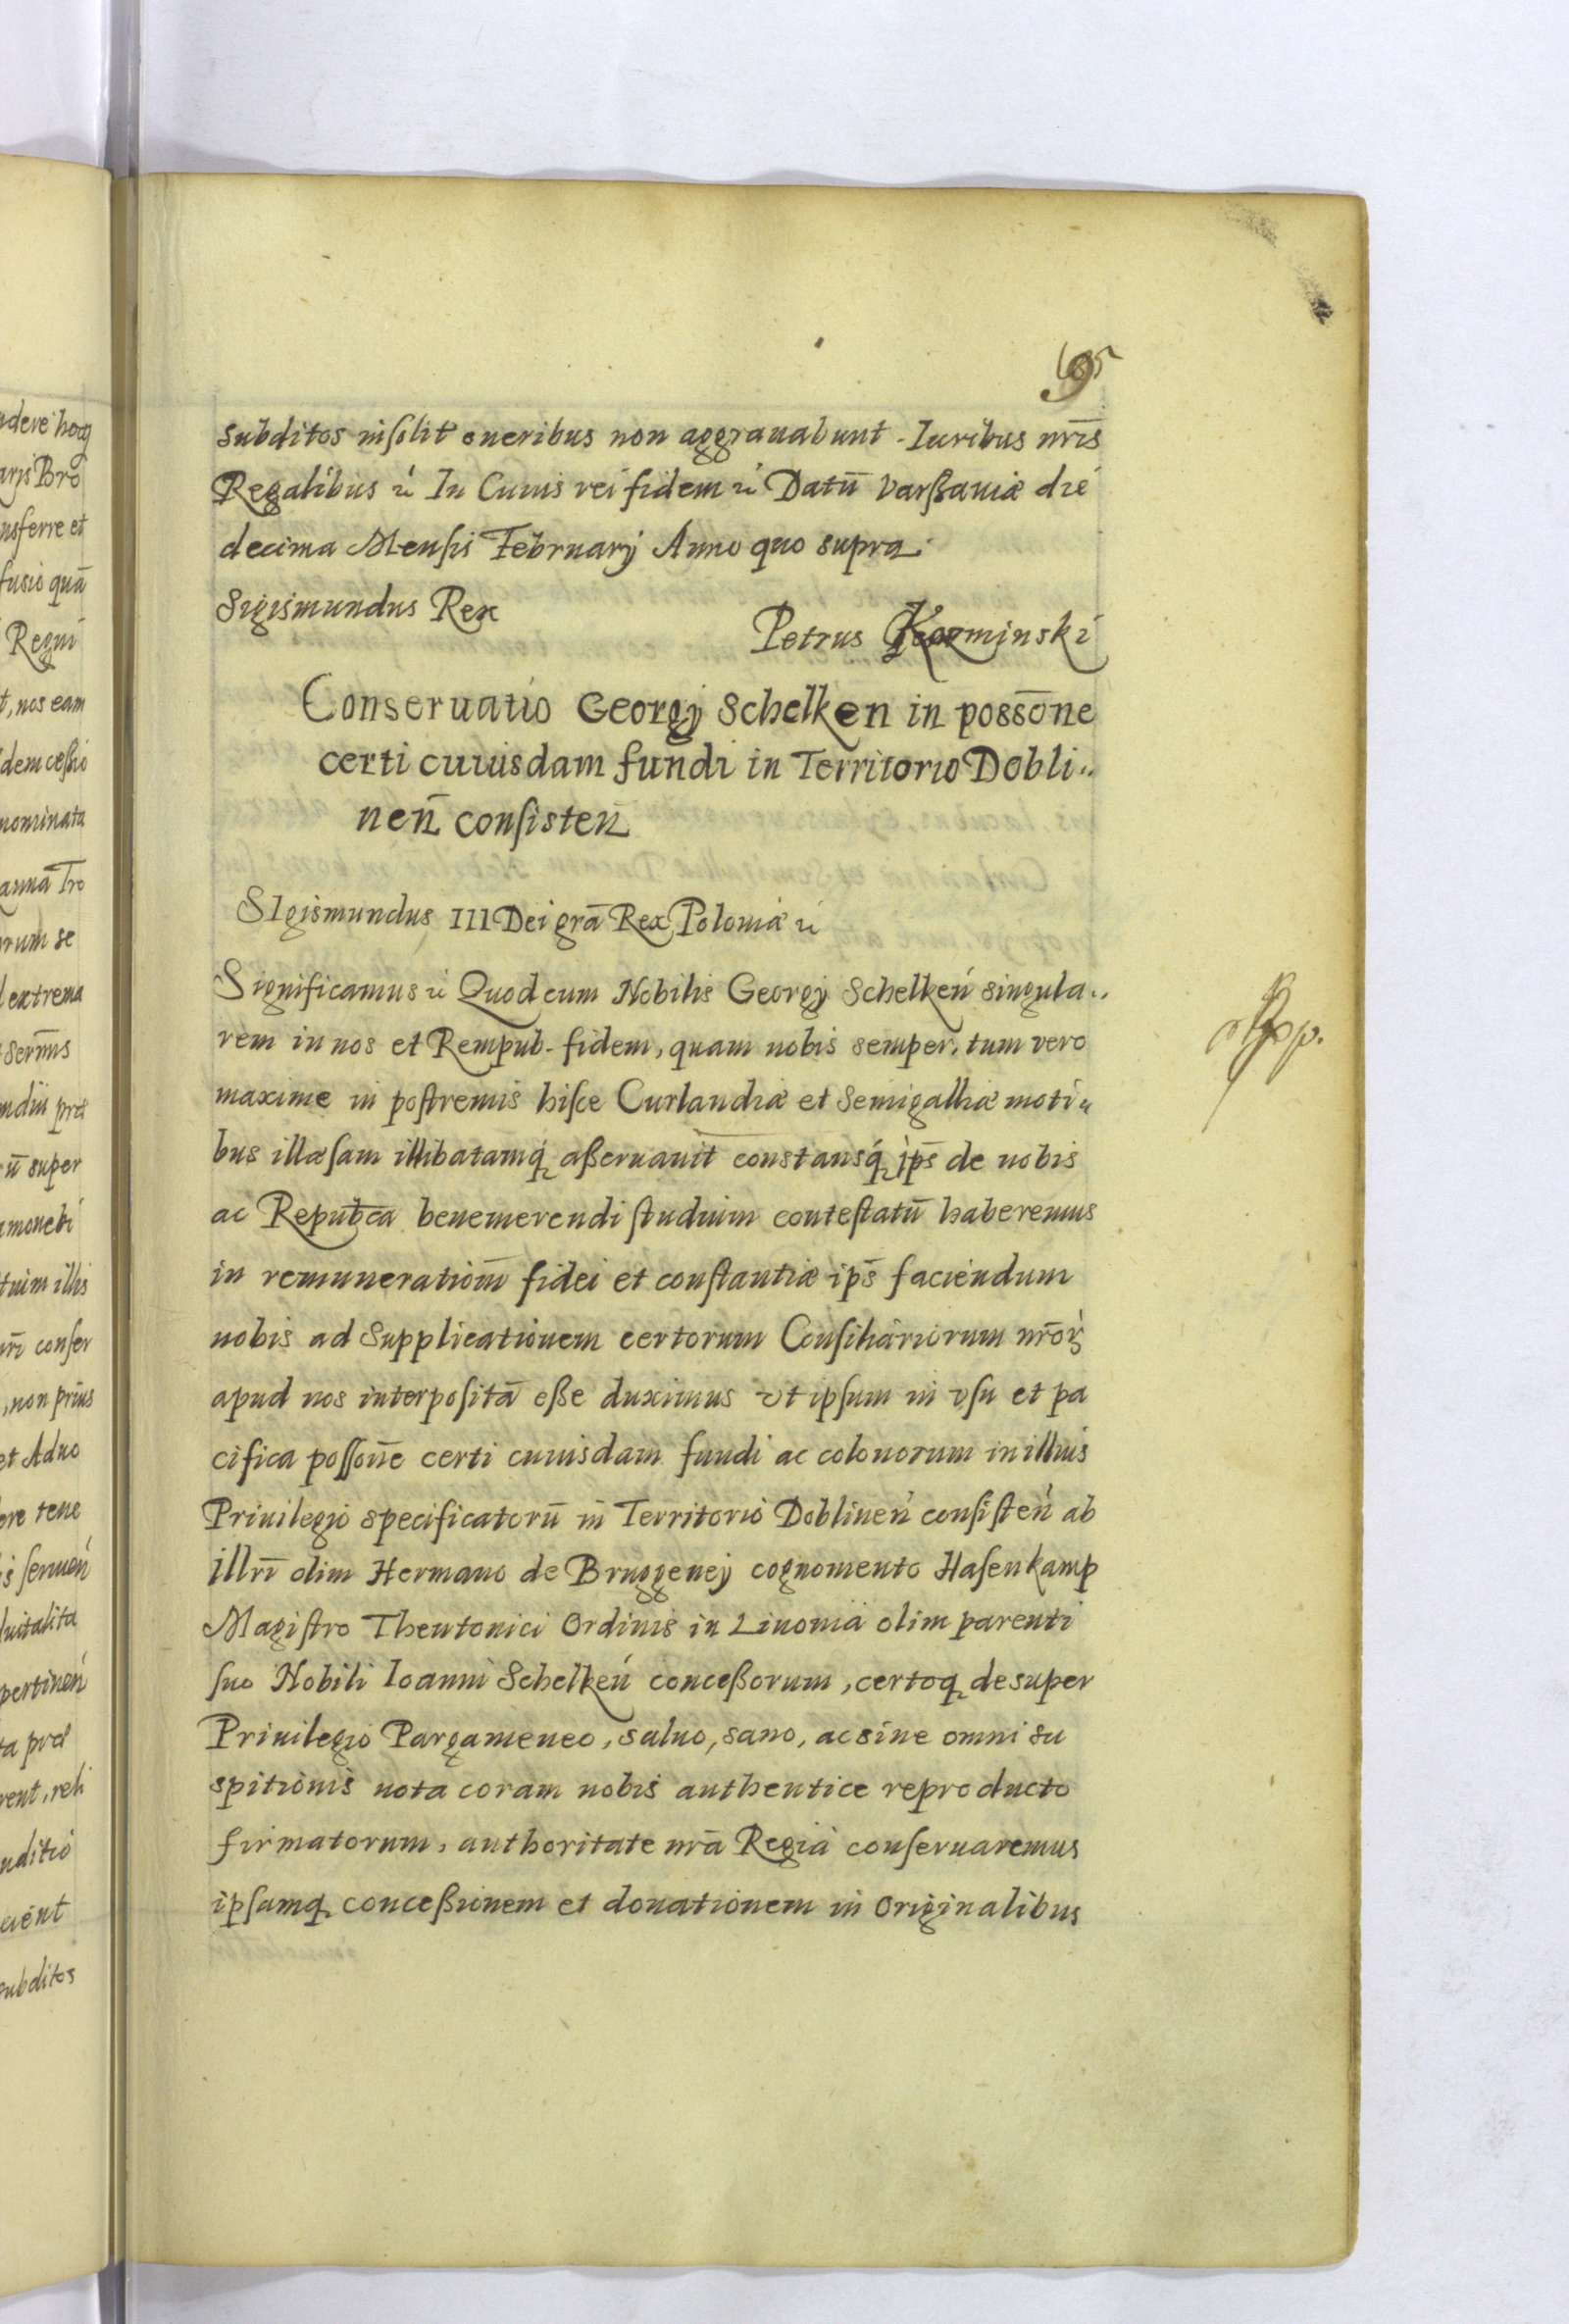 subditos insolit oneribus non aggrauabunt. Iuribus nr̃is
Regalibus &c In Cuius rei fidem &c Datũ Varßauiæ die
decima Mensis February Anno quo supra.
Sigismundus Rex
Petrus
Conseruatio Georgij Schelken in possõne
certi cuiusdam fundi in Territorio Dobli..
neñ consisteñ
SIgismundus III Dei grã Rex Poloniæ &c
Significamus &c Quod cum Nobilis Georgy Schelkeń singula..
rem in nos et Rempub. fidem, quam nobis semper, tum vero
maxime in postremis hisce Curlandiæ et Semigalliæ moti..
bus illæsam illibatamq́ aßeruauit constansq́ ip̃s de nobis
ac Repub̃ca benemerendi studium contestatũ haberemus
in remunerationẽ fidei et constantiæ ip̃s faciendum
nobis ad Supplicationem certorum Consiliariorum nr̃oꝝ
apud nos interpositã eße duximus vt ipsum in vsu et pa
cifica possoñe certi cuiusdam fundi ac colonorum in illius
Priuilegio specificatorũ in Territorio Doblineń consisteń ab
illr̃i olim Hermano de Bruggeney cognomento Hasenkamp
Magistro Theutonici Ordinis in Liuonia olim parenti
suo Nobili Ioanni Schelkeń conceßorum, certoq desuper
Priuilegio Pargameneo, saluo, sano, ac sine omni su
spitionis nota coram nobis authentice reproducto
firmatorum, authoritate nr̃a Regia conseruaremus
ipsamq conceßionem et donationem in Originalibus